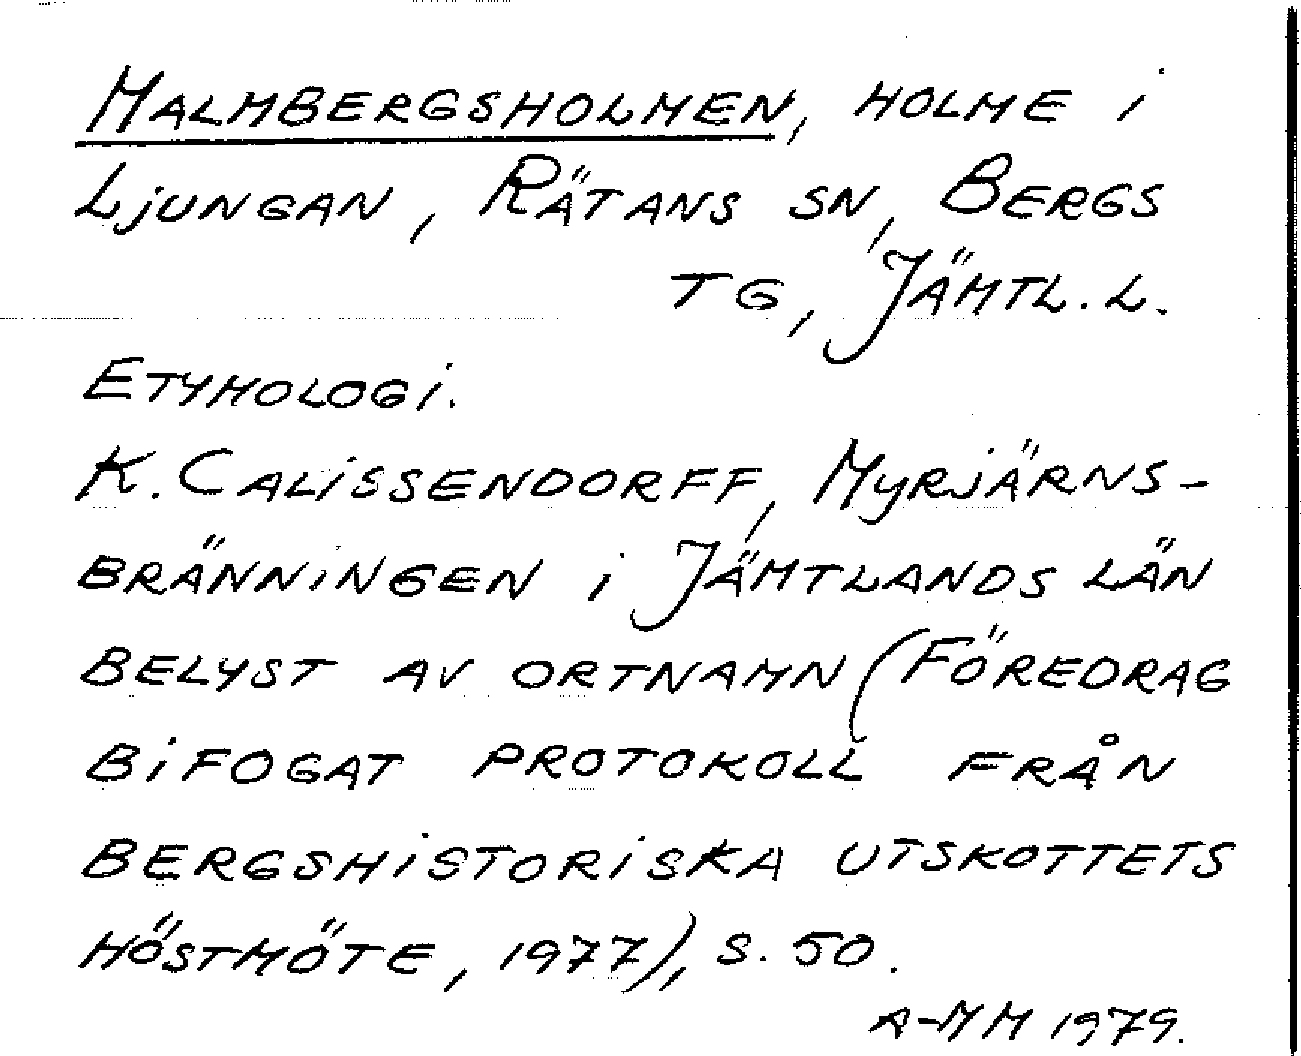 MALMBERGSHOLMEN, HOLME i
LJUNGAN, RÄTANS SN, BERGS
TG, JÄMTL. L.
ETYMOLOGI.
K. CALISSENDORFF, MYRJÄRNS-
BRÄNNINGEN i JÄMTLANDS LÄN
BELYST AV ORTNAMN (FÖREDRAG
BIFOGAT PROTOKOLL FRÅN
BERGSHISTORISKA UTSKOTTETS
HÖSTMÖTE, 1977), S. 50.
A-MM 1979.